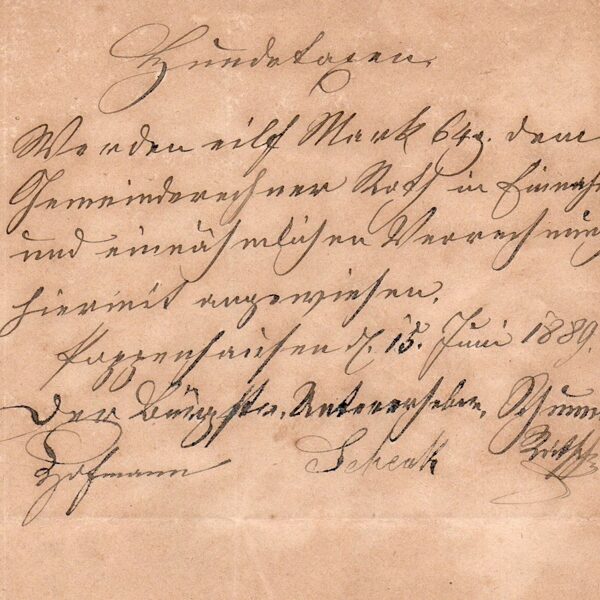 Hundetaxen.
Werden eilf Mark 64 ₰. dem
Gemeinderechner Roth in Einnah
und einnähmlichen Verrechnung
hiermit angewiesen.
Poppenhausen d. 15. Juni 1889.
Der Bürgstr.
Hofmann Schenk